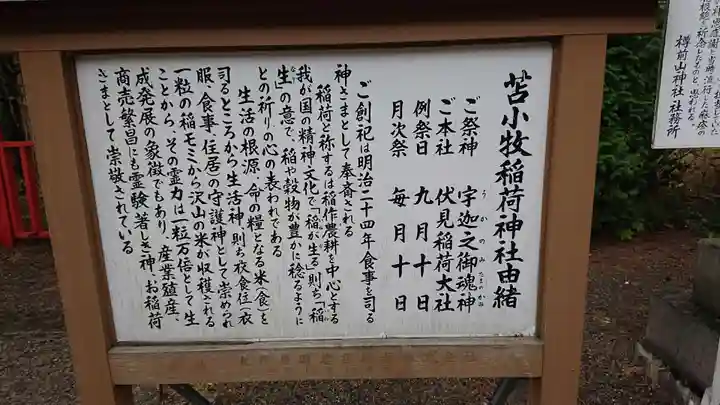 苫小牧稲荷神社由緒
ご祭神 宇迦之御魂神
うかのみたまのかみ
ご本社 伏見稲荷大社
例祭日 九月十日
月次祭 毎月十日
ご創祀は明治二十四年食事を司る
神さまとして奉斎される
稲荷と称するは稲作農耕を中心とする
我が国の精神文化で「稲が生る」則ち「稲
生」の意で、稲や穀物が豊かに稔るように
との祈りの心の表われである
生活の根源・命の糧となる米(食)と
司るところから生活神、則ち衣食住(衣
服・食事・住居)の守護神として崇められ
一粒の稲モミから沢山の米が収穫される
ことから、その霊力は一粒万倍として生
成発展の象徴でもあり、産業殖産、
商売繁昌にも霊験著しき神、お稲荷
さまとして崇敬されている
樽前山神社 社務所